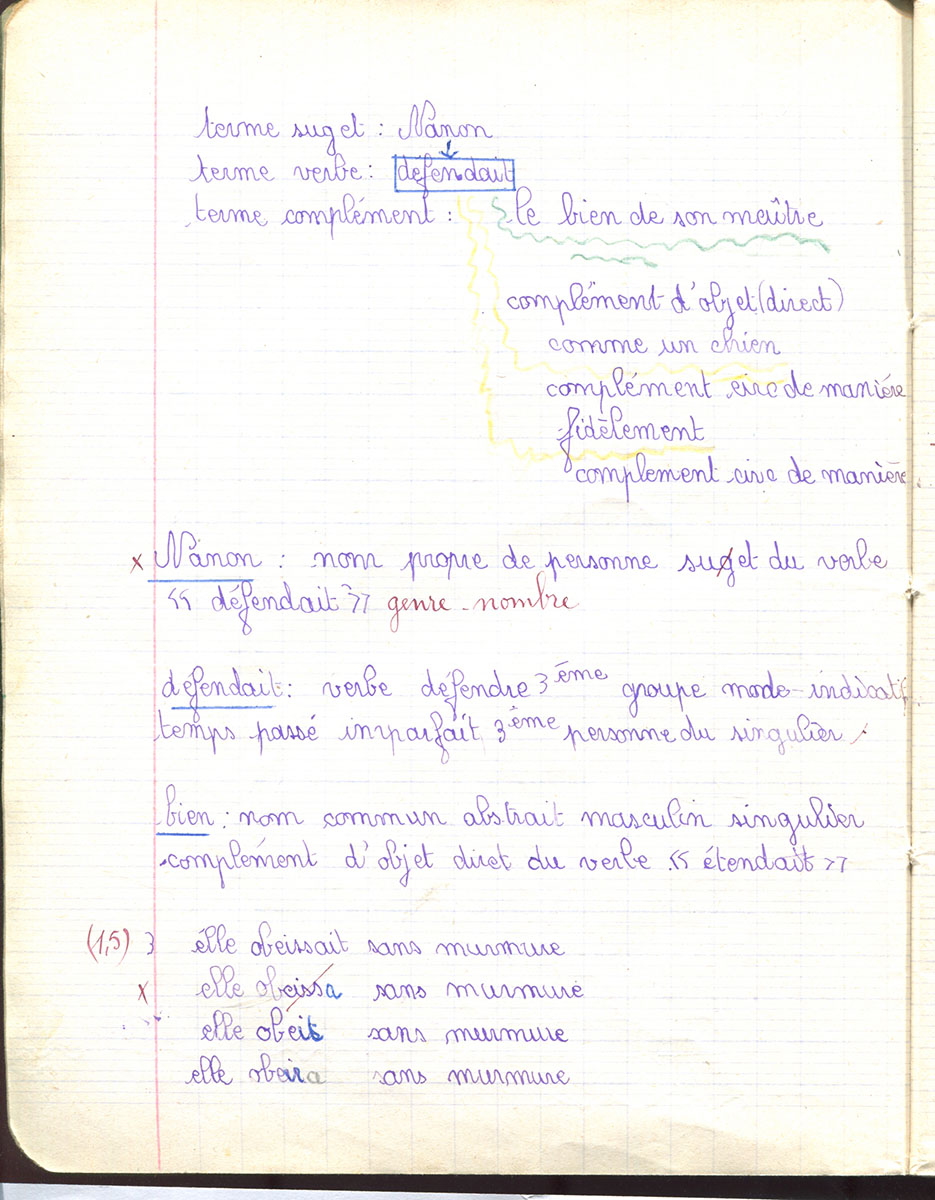 terme suget : Nanon
terme verbe : défendait
terme complément : le bien de son meûtre
complément d'objet (direct)
comme un chien
complément circ de manière
fidèlement
complement circ de manière
x Nanon : nom propre de personne suget du verbe
« défendait » genre - nombre
défendait : verbe défendre 3ème groupe mode-indicatif
temps passé imparfait 3ème personne du singulier
bien : nom commun abstrait masculin singulier
complément d'objet diret du verbe « étendait »
(1,5) 3 elle obeissait sans murmure
x elle obeissa sans murmure
elle obeit sans murmure
elle obeira sans murmure